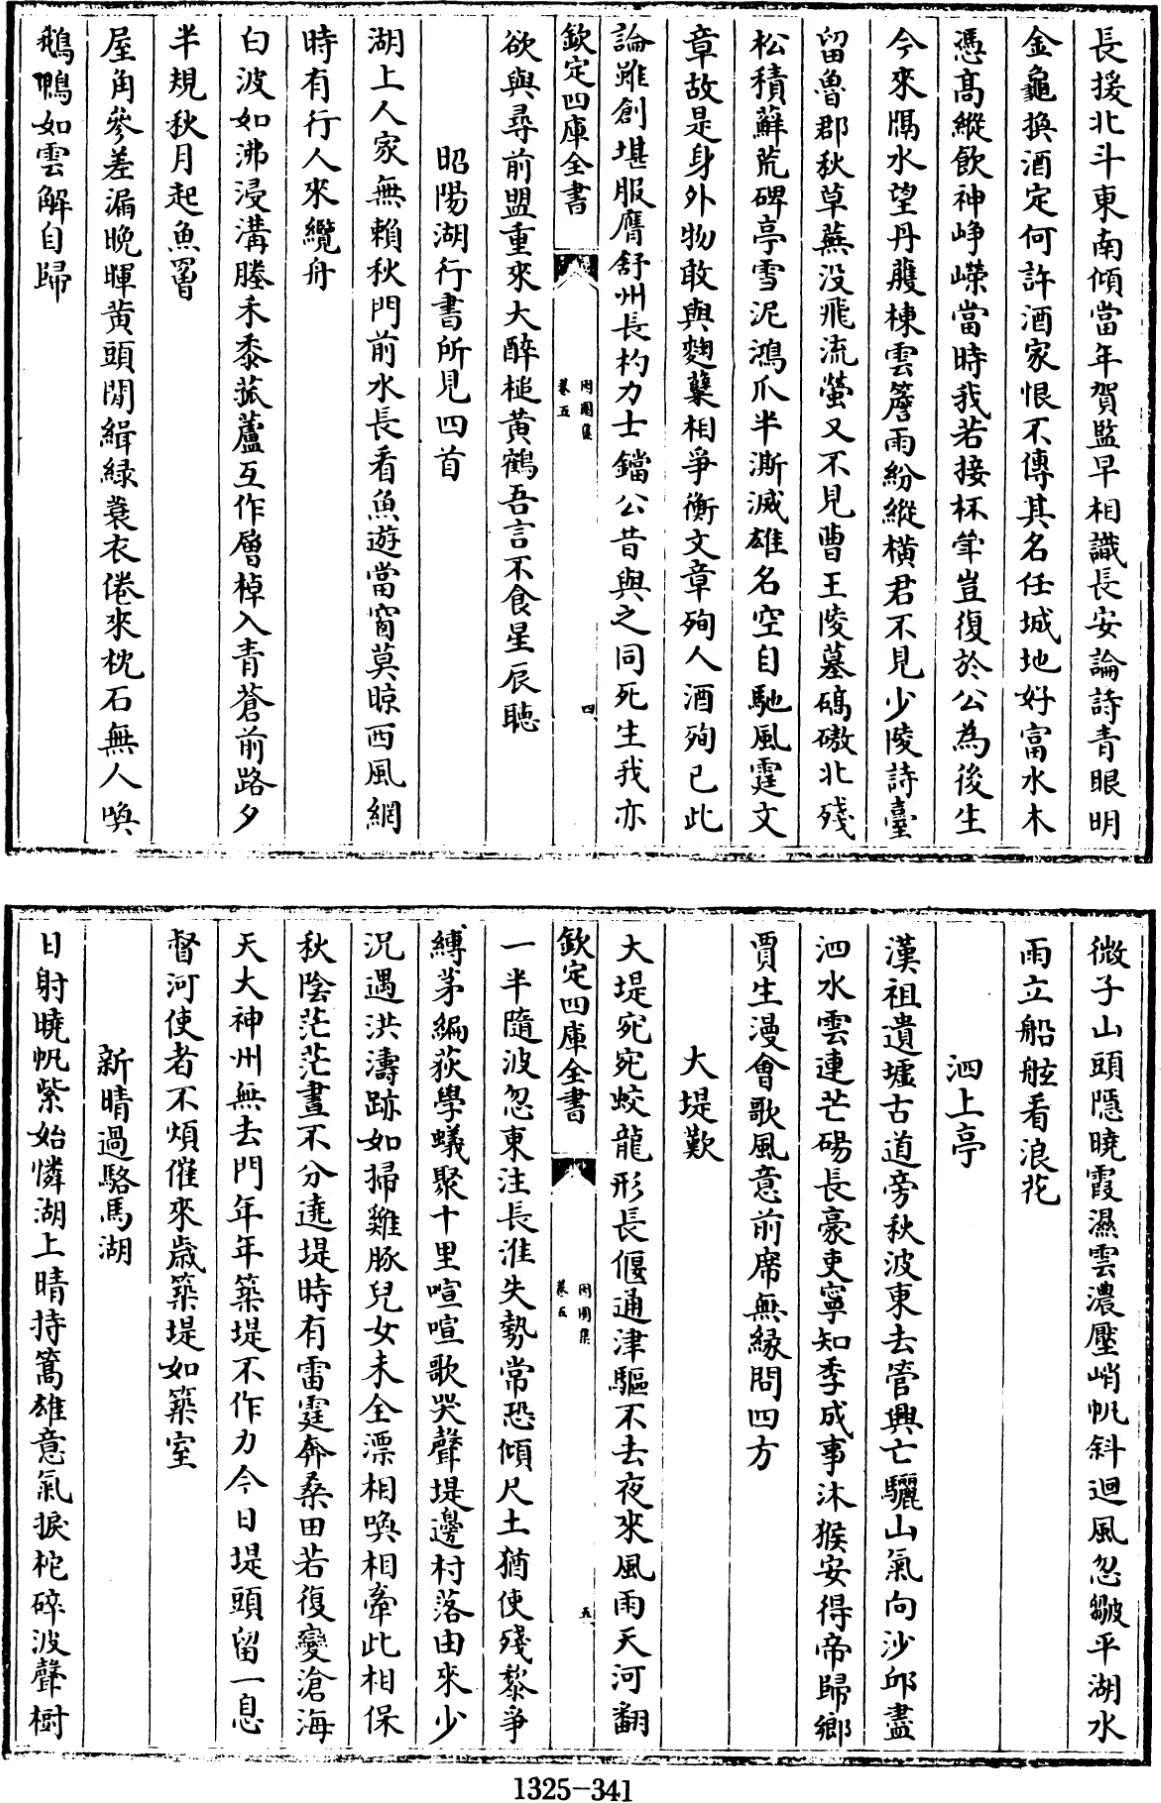 長援北斗東南傾當年賀監早相識長安論詩青眼明
金龜換酒定何許酒家恨不傳其名任城地好富水木
憑髙縱飲神崢嶸當時我若接杯斚豈復於公為後生
今來隅水望丹雘棟雲簷雨紛縱横君不見少陵詩臺
留魯郡秋草蕪没飛流螢又不見曹王陵墓碻磝北殘
松積蘚荒碑亭雪泥鴻爪半澌滅雄名空自馳風霆文
章故是身外物敢與麴糵相爭衡文章殉人酒殉己此
論雖創堪服膺舒州長杓力士鐺公昔與之同死生我亦
欽定四庫全書
卷五
四
欲與尋前盟重來大醉槌黄鶴吾言不食星辰聴
昭陽湖行書所見四首
湖上人家無賴秋門前水長看魚遊當窗莫晾西風網
時有行人來纜舟
白波如沸浸溝塍禾黍菰蘆互作層棹入青蒼前路夕
半規秋月起魚罾
屋角參差漏晚暉黄頭閒緝緑蓑衣倦來枕石無人喚
鵝鴨如雲解自歸
微子山頭隠曉霞濕雲濃壓峭帆斜迴風忽皺平湖水
雨立船舷看浪花
泗上亭
漢祖遺墟古道旁秋波東去管興亡驪山氣向沙邱盡
泗水雲連芒碭長豪吏寧知季成事沐猴安得帝歸鄉
賈生漫會歌風意前席無縁問四方
大堤歎
大堤宛宛蛟龍形長偃通津驅不去夜來風雨天河翻
欽定四庫全書
卷五
五
一半隨波忽東注長淮失勢常恐傾尺土猶使殘黎爭
縛茅編荻學蟻聚十里喧喧歌哭聲堤邊村落由來少
況遇洪濤跡如掃雞豚兒女未全漂相喚相牽此相保
秋陰茫茫晝不分遶堤時有雷霆奔桑田若復變滄海
天大神州無去門年年築堤不作力今日堤頭留一息
督河使者不煩催來歲築堤如築室
新晴過駱馬湖
日射曉帆紫始憐湖上晴持篙雄意氣捩柁碎波聲樹
1325-341